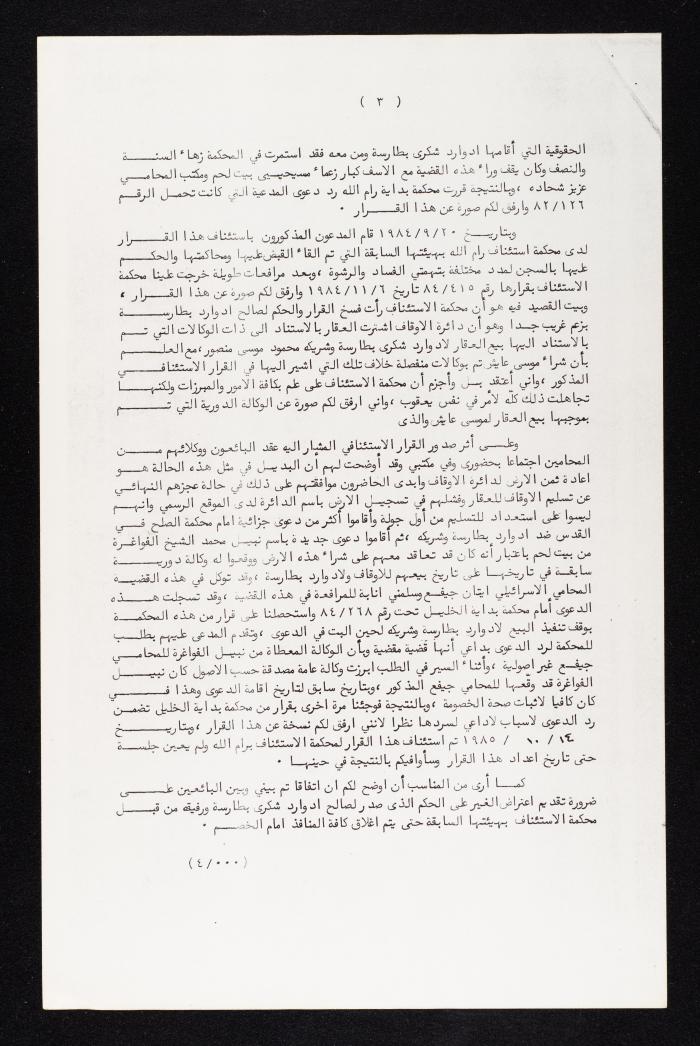 ( ٣ )
الحقوقية التي أقامها ادوارد شكرى بطارسة ومن معه فقد استمرت في المحكمة زهاء السنة
والنصف وكان يقف وراء هذه القضية مع الاسف كبار زعماء مسيحيي بيت لحم ومكتب المحامي
عزيز شحاده ، وبالنتيجة قررت محكمة بداية رام الله رد دعوى المدعية التي كانت تحمل الرقم
٨٢/١٢٦ وارفق لكم صورة عن هذا القرار .
وبتاريخ ١٩٨٤/٩/٢٠ قام المدعون المذكورون باستئناف هذا القرار
لدى محكمة استئناف رام الله بهيئتها السابقة التي تم القاء القبض عليها ومحاكمتها والحكم
عليها بالسجن لمدد مختلفة بتهمتي الفساد والرشوة ، وبعد مرافعات طويلة خرجت علينا محكمة
الاستئناف بقرارها رقم ٨٤/٤١٥ تاريخ ١٩٨٤/١١/٦ وارفق لكم صورة عن هذا القرار ،
وبيت القصيد فيه هو أن محكمة الاستئناف رأت فسخ القرار والحكم لصالح ادوارد بطارسة
بزعم غريب جدا وهو أن دائرة الاوقاف اشترت العقار بالاستناد الى ذات الوكالات التي تم
بالاستناد اليها بيع العقار لادوارد شكرى بطارسة وشريكه محمود موسى منصور ، مع العلم
بأن شراء موسى عايش تم بوكالات منفصلة خلاف تلك التي اشير اليها في القرار الاستئنافي
المذكور ، واني أعتقد بل وأجزم أن محكمة الاستئناف على علم بكافة الامور والمبرزات ولكنها
تجاهلت ذلك كله لأمر في نفس يعقوب ، واني ارفق لكم صورة عن الوكالة الدورية التي تم
بموجبها بيع العقار لموسى عايش والذى
وعلى أثر صدور القرار الاستئنافي المشار اليه عقد البائعون ووكلائهم من
المحامين اجتماعا بحضورى وفي مكتبي وقد أوضحت لهم أن البديل في مثل هذه الحالة هو
اعادة ثمن الارض لدائرة الاوقاف وابدى الحاضرون موافقتهم على ذلك في حالة عجزهم النهائي
عن تسليم الاوقاف للعقار وفشلهم في تسجيل الارض باسم الدائرة لدى الموقع الرسمي وانهم
ليسوا على استعداد للتسليم من أول جولة وأقاموا أكثر من دعوى جزائية امام محكمة الصلح في
القدس ضد ادوارد بطارسة وشريكه ، ثم أقاموا دعوى جديدة باسم نبيل محمد الشيخ الفواغرة
من بيت لحم باعتبار أنه كان قد تعاقد معهم على شراء هذه الارض ووقعوا له وكالة دورية
سابقة في تاريخها على تاريخ بيعهم للاوقاف ولادوارد بطارسة ، وقد توكل في هذه القضية
المحامي الاسرائيلي ايتان جيفع وسلمني انابة للمرافعة في هذه القضية ، وقد تسجلت هذه
الدعوى أمام محكمة بداية الخليل تحت رقم ٨٤/٢٦٨ واستحصلنا على قرار من هذه المحكمة
بوقف تنفيذ البيع لادوارد بطارسة وشريكه لحين البت في الدعوى ، وتقدم المدعى عليهم بطلب
للمحكمة لرد الدعوى بداعي أنها قضية مقضية وبأن الوكالة المعطاة من نبيل الفواغرة للمحامي
جيفع غير اصولية ، وأثناء السير في الطلب ابرزت وكالة عامة مصدقة حسب الاصول كان نبيل
الفواغرة قد وقعها للمحامي جيفع المذكور ، وبتاريخ سابق لتاريخ اقامة الدعوى وهذا في
كان كافيا لاثبات صحة الخصومة ، وبالنتيجة فوجئنا مرة اخرى بقرار من محكمة بداية الخليل تضمن
رد الدعوى لاسباب لاداعي لسردها نظرا لانني ارفق لكم نسخة عن هذا القرار ، وبتاريخ
١٤ / ١٠ / ١٩٨٥ تم استئناف هذا القرار لمحكمة الاستئناف برام الله ولم يعين جلسة
حتى تاريخ اعداد هذا القرار وسأوافيكم بالنتيجة في حينها .
كما أرى من المناسب أن اوضح لكم ان اتفاقا تم بيني وبين البائعين على
ضرورة تقديم اعتراض الغير على الحكم الذى صدر لصالح ادوارد شكرى بطارسة ورفيقه من قبل
محكمة الاستئناف بهيئتها السابقة حتى يتم اغلاق كافة المنافذ امام الخصم .
(٤/٠٠٠)